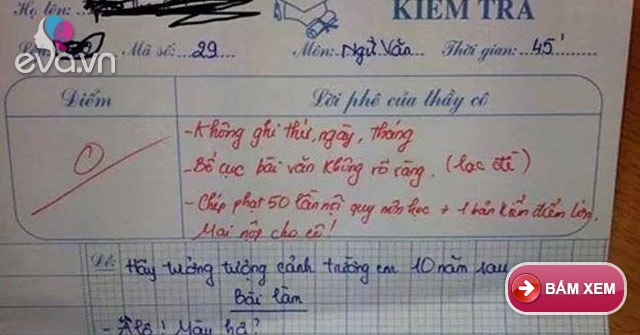 Họ tên:
KIỂM TRA
eva.vn
Mã số: 29
Môn: Ngữ Văn
Thời gian: 45'
Điểm
Lời phê của thầy cô
0
- Không ghi thứ, ngày, tháng
- Bố cục bài văn không rõ ràng. (lạc đề)
- Chép phạt 50 lần nội quy môn học + 1 bản kiểm điểm lớn.
Mai nộp cho cô!
Đề: Hãy tưởng tượng cảnh trường em 10 năm sau
Bài làm
- Alô! Mày hả?
BẤM XEM